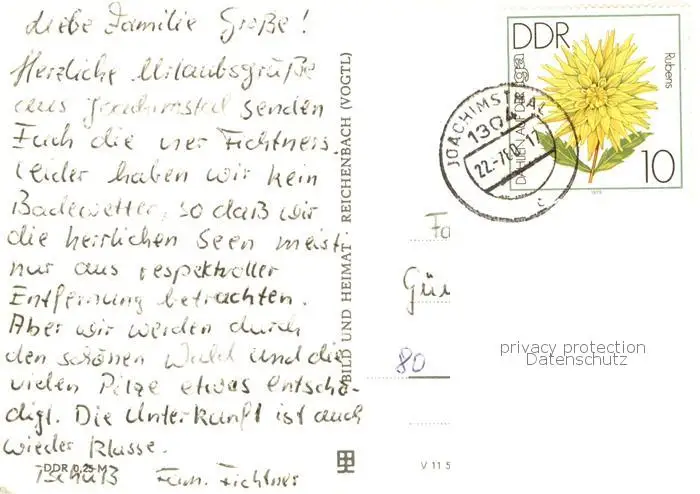 Liebe Familie Große!
Herzliche Urlaubsgrüße
aus Joachimstal senden
Euch die vier Fichtners.
Leider haben wir kein
Badewetter, so daß wir
die herrlichen Seen meist
nur aus respektvoller
Entfernung betrachten.
Aber wir werden durch
den schönen Wald und die
vielen Pilze etwas entschä-
digt. Die Unterkunft ist auch
wieder Klasse.
Tschüß Fam. Fichtner
DDR 0,25 M
BILD UND HEIMAT REICHENBACH (VOGTL)
V 11 5
DDR
DAHLIEN AUF DER
Rubens
10
1979
JOACHIMSTHAL
1304
22.-7.80.-17
c
Fa
Gün
80
privacy protection
Datenschutz